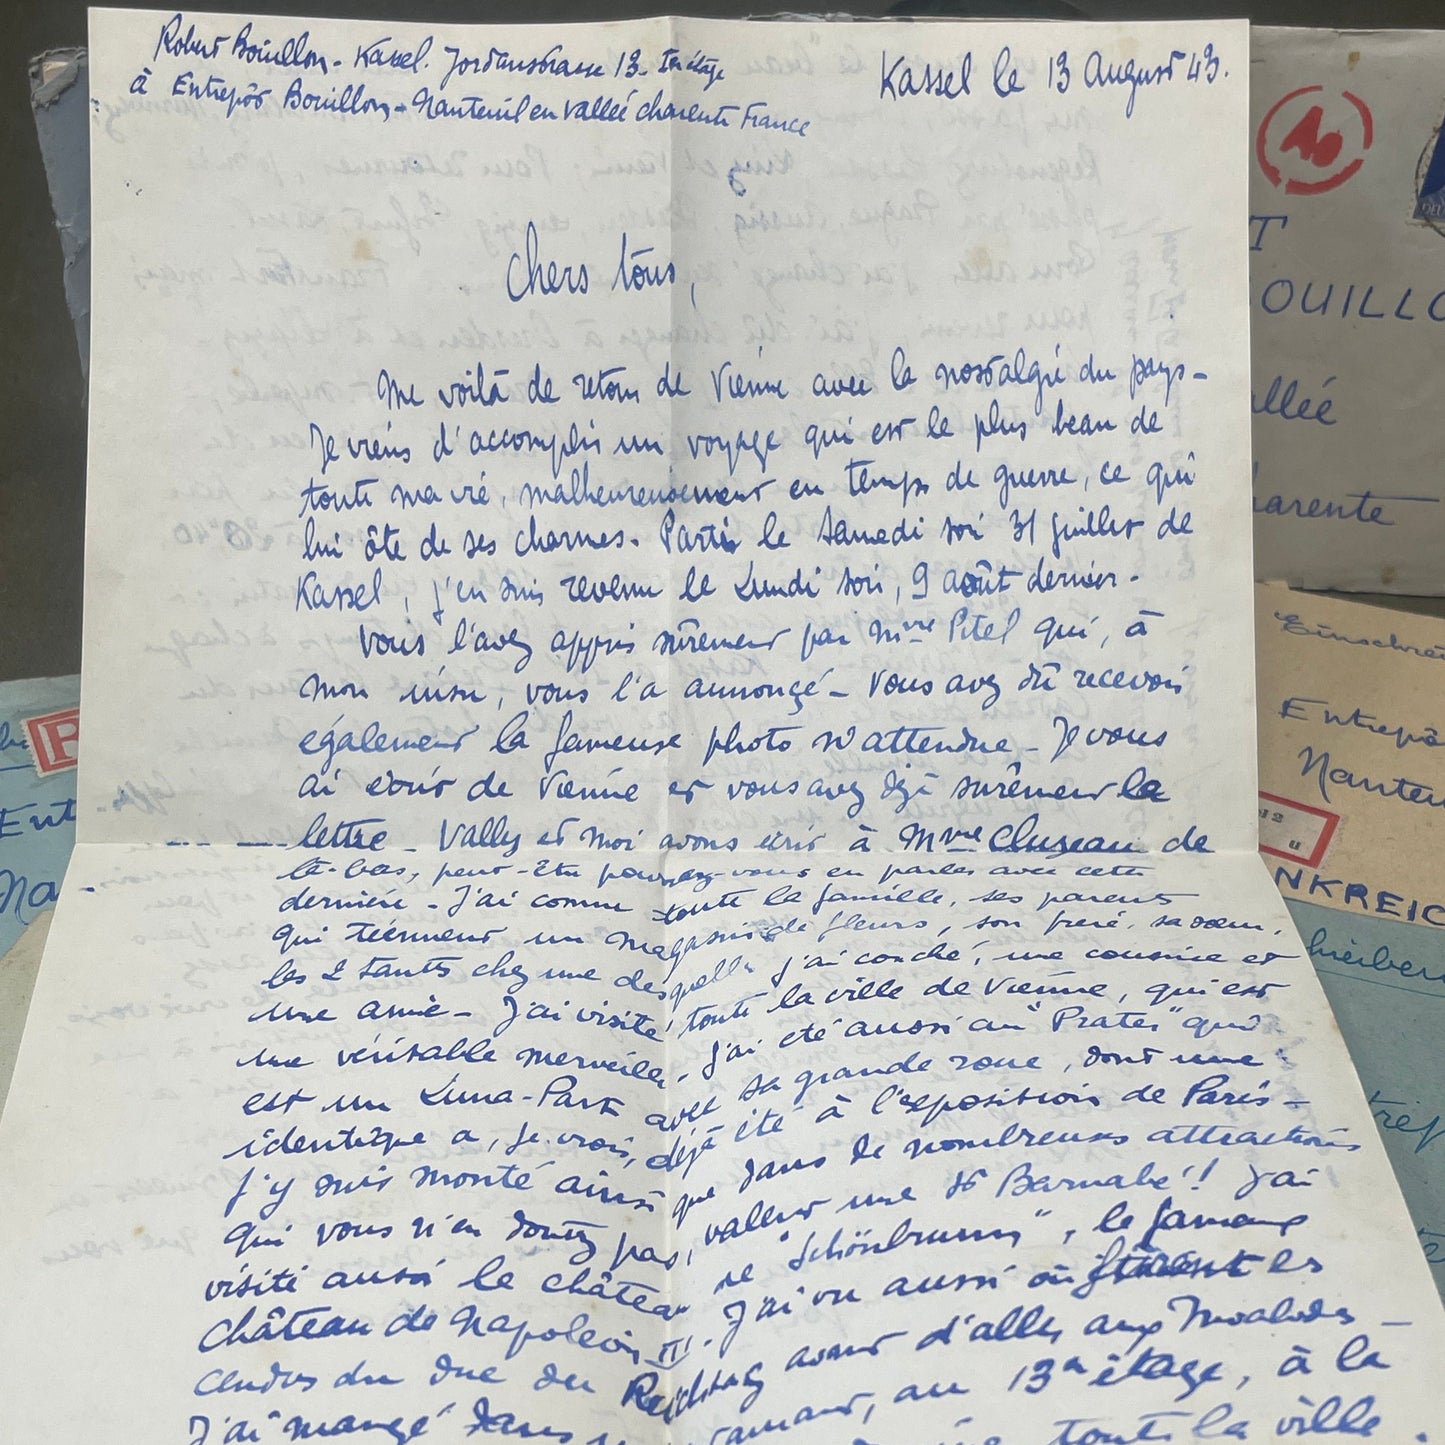 Robert Bouillon - Kassel. Jordanstrasse 13 - 1er étage
à Entrepôt Bouillon - Nanteuil en vallée charente France
Kassel le 13 August 43.
Chers tous,
Me voilà de retour de Vienne avec la nostalgie du pays -
Je viens d'accomplir un voyage qui est le plus beau de
toute ma vie, malheureusement en temps de guerre, ce qui
lui ôte de ses charmes. Parti le Samedi soir 31 juillet de
Kassel, j'en suis revenu le Lundi soir, 9 août dernier.
Vous l'avez appris sûrement par Mme Pitel qui, à
mon insu, vous l'a annoncé - Vous avez dû recevoir
également la fameuse photo n'attendue - Je vous
ai écrit de Vienne et vous avez déjà surêment la
lettre - Vally et moi avons écrit à Mme Cluzeau de
là-bas, peut-être pourrez-vous en parler avec cette
dernière - J'ai connu toute la famille, ses parents
qui tiennent un magasin de fleurs, son frère, sa sœur,
les 2 tantes chez une desquelles j'ai couché, une cousine et
une amie - J'ai visité toute la ville de Vienne, qui est
une véritable merveille. J'ai été aussi au "Prater" qui
est un Luna-Park avec sa grande roue, dont une
identique a, je crois, déjà été à l'exposition de Paris -
J'y suis monté ainsi que dans de nombreuses attractions
qui vous n'en doutez pas, valent une St Barnabé!! J'ai
visité aussi le château de "Schönbrunn", le fameux
château de Napoléon III. J'ai vu aussi où étaient les
cendres du duc du Reichstag avant d'aller aux Invalides -
J'ai mangé dans un restaurant, au 13e étage, à la
toute la ville.
T
OUILLO
allée
harente
Einschrei
Entrepô
Nanteu
u
NKREIC
hreiber
trep
R
Ent
Na